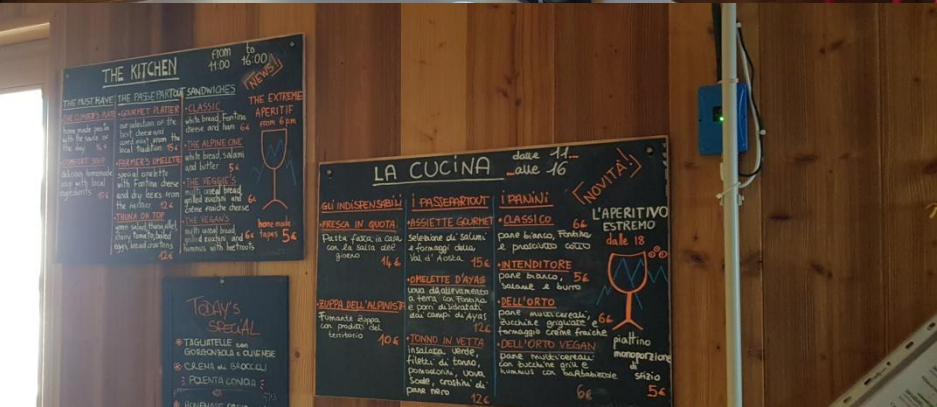 THE KITCHEN
from to
11:00 16:00
NEWS!
THE MUST HAVE
home made pasta
with the sauce of
the day 14€
COMFORT SOUP
delicious homemade
soup with local
ingredients 10€
THE PASSEPARTOUT
•GOURMET PLATTER
our selection of the
best cheese and
cured meat from the
local tradition 15€
•FARMER'S OMELETTE
special omelette
with Fontina cheese
12€
•THUNA ON TOP
green salad, thuna fillet,
cherry tomato, boiled
eggs, bread croutons
12€
SANDWICHES
•CLASSIC
white bread, Fontina
cheese and ham 6€
•THE ALPINE ONE
white bread, salami
and butter 5€
•THE VEGGIE'S
multi cereal bread,
grilled zucchini and 6€
crème fraîche cheese
•THE VEGAN'S
multi cereal bread,
grilled zucchini and 6€
hummus with beetroots
THE EXTREME
APERITIF
from 6 pm
home made
tapas 5€
TODAY'S
SPECIAL
TAGLIATELLE con
CREMA di BROCCOLI
POLENTA CONCIA
LA CUCINA
dalle 11...
...alle 16
NOVITÀ!
GLI INDISPENSABILI
•FRESCA IN QUOTA
Pasta fatta in casa
con la salsa del
giorno
14€
•ZUPPA DELL'ALPINISTA
Fumante zuppa
con prodotti del
territorio
10€
I PASSEPARTOUT
•ASSIETTE GOURMET
Selezione di salumi
e formaggi della
Val d'Aosta
15€
•OMELETTE D'AYAS
uova d'allevamento
a terra con Fontina
e porri disidratati
dai campi di AYAS
12€
•TONNO IN VETTA
insalata verde,
filetti di tonno,
pomodorini, uova
sode, crostini di
pane nero
12€
I PANINI
•CLASSICO 6€
pane bianco, Fontina
e prosciutto cotto
•INTENDITORE
pane bianco, 5€
salame e burro
•DELL'ORTO
pane multicereali,
zucchine grigliate e 6€
formaggio crème fraîche
•DELL'ORTO VEGAN
pane multicereali
con zucchine grill e
hummus con barbabietole
6€
L'APERITIVO
ESTREMO
dalle 18
piattino
monoporzione
di
sfizio
5€